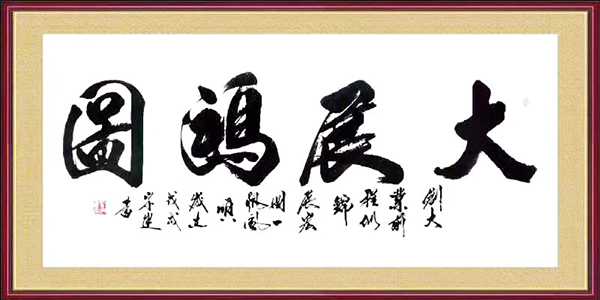 大展鴻圖
創大
業前
程似
錦
展宏
圖一
帆風
順
歲在
戊戌
書